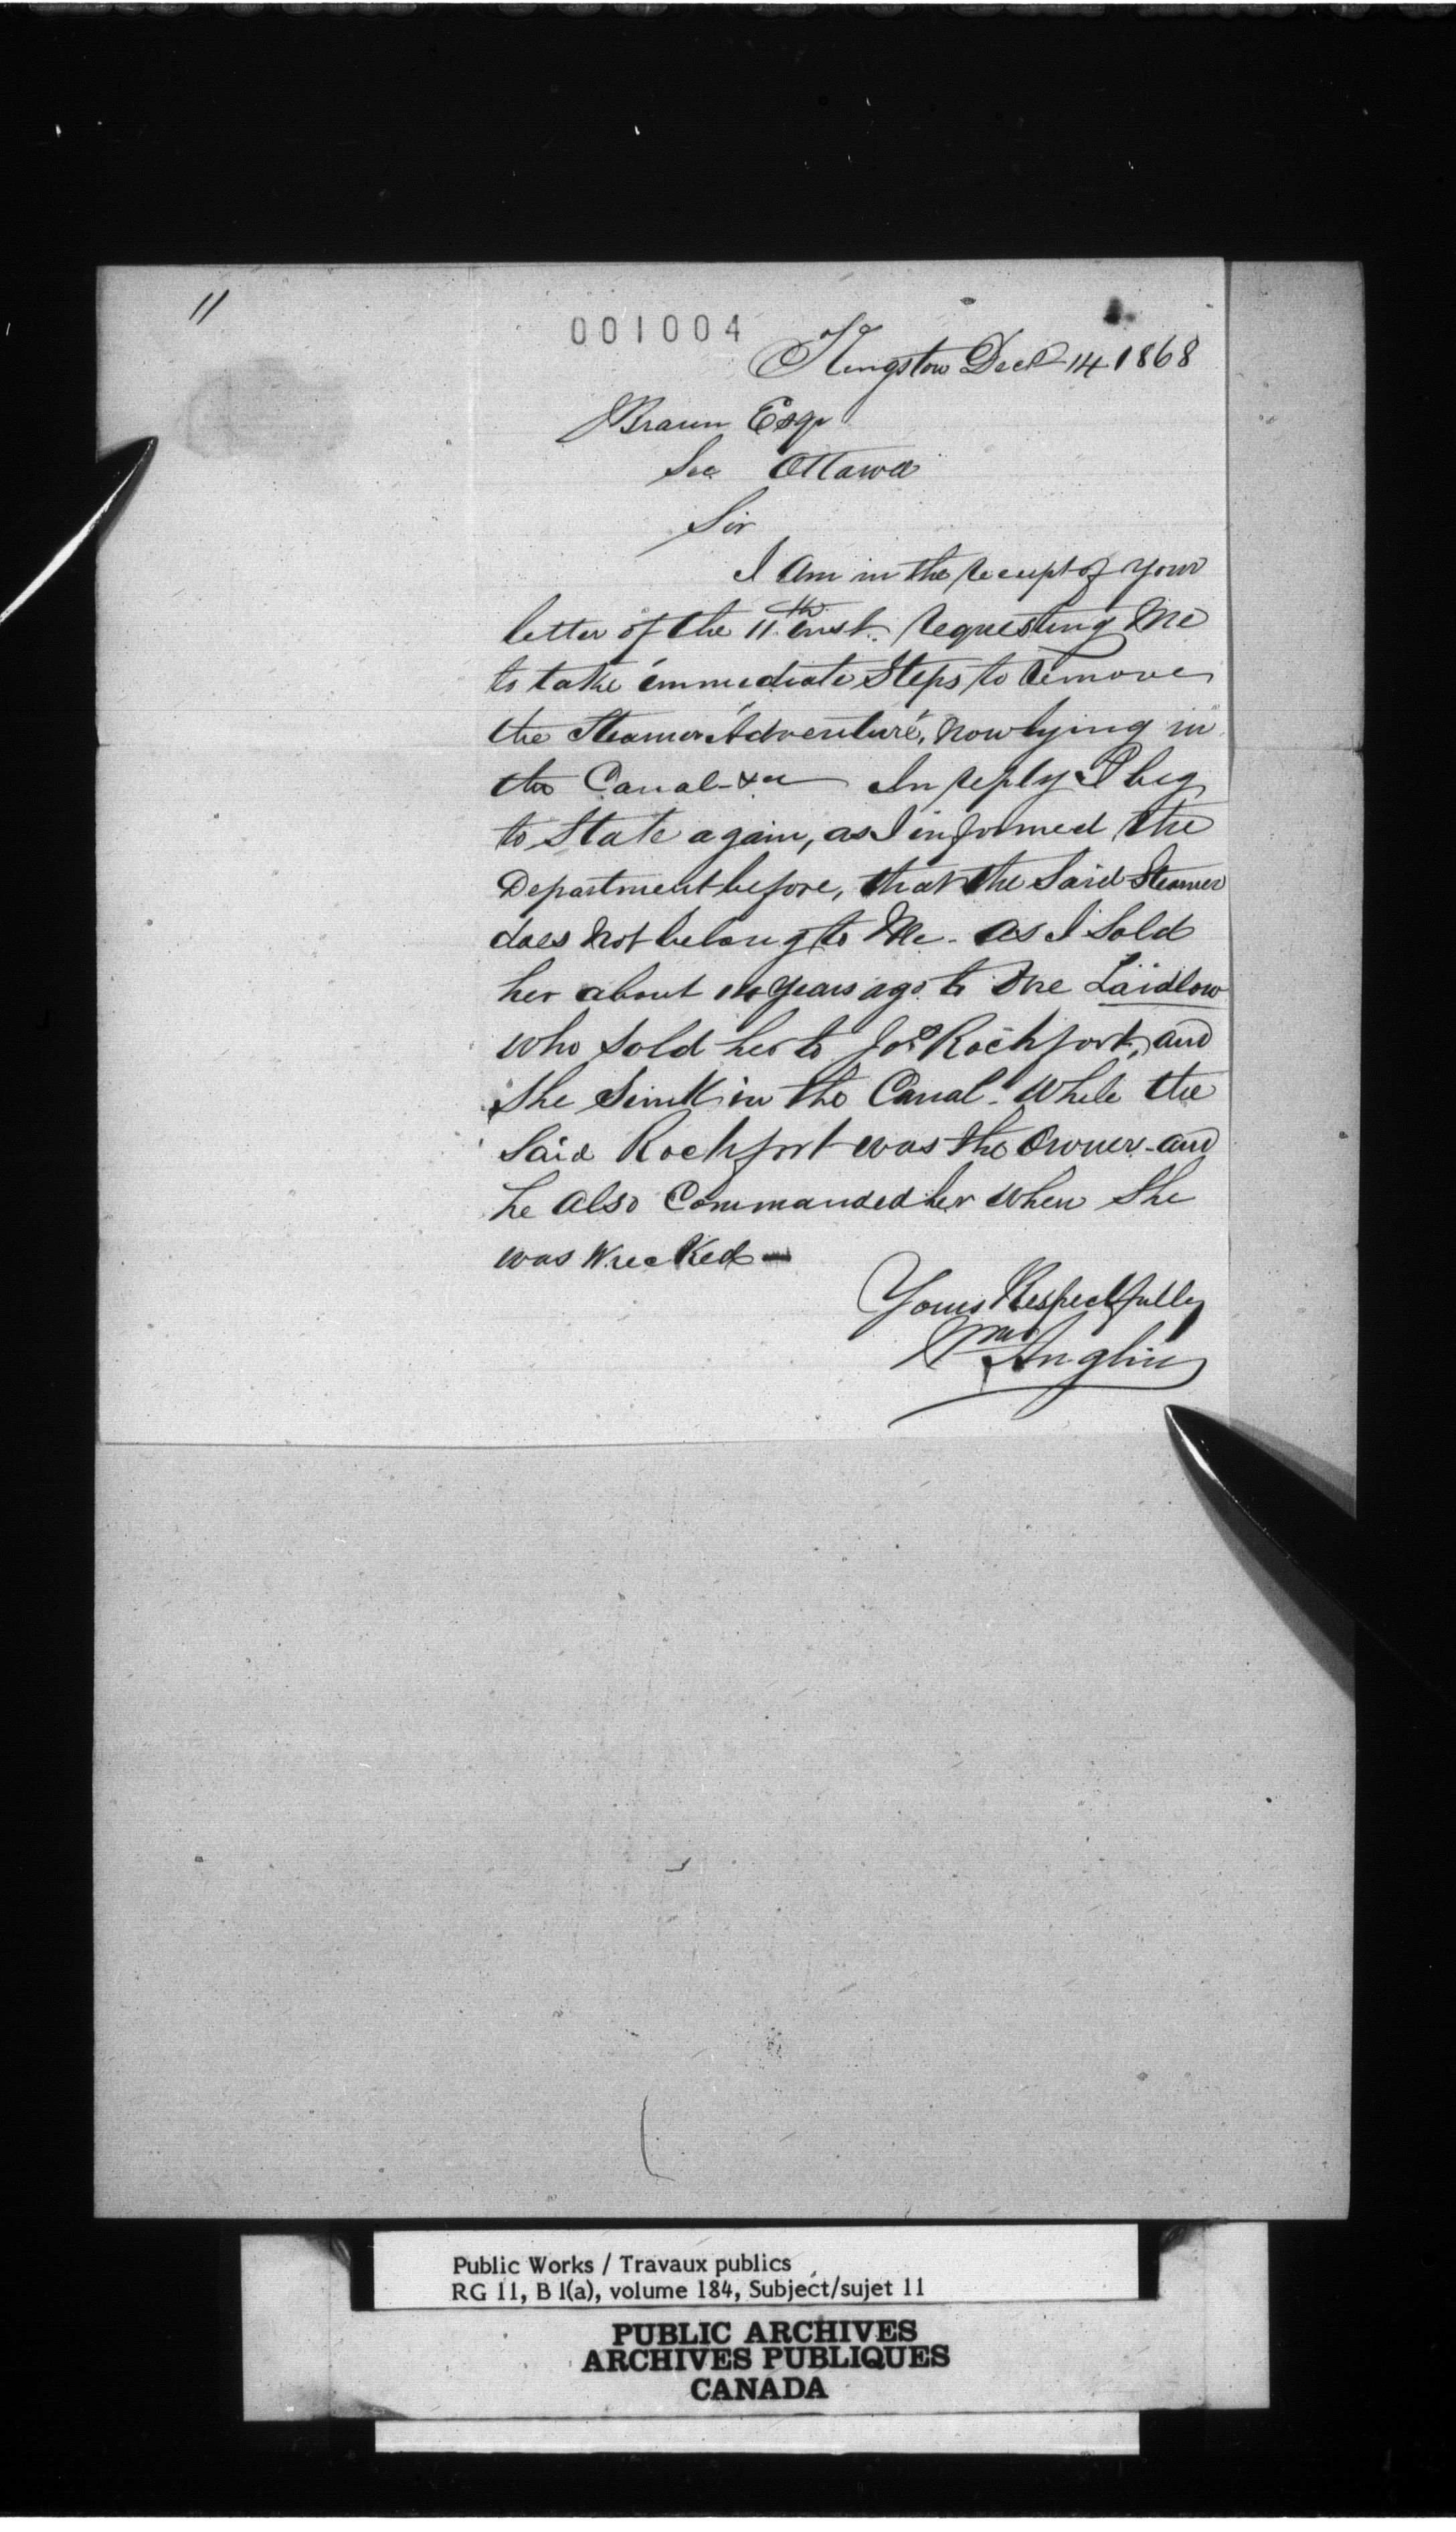 11
001004
Kingston Decr 14 1868
Braun Esqr
Sec Ottawa
Sir
I am in the receipt of your
letter of the 11th inst. requesting me
to take immediate Steps to remove
the Steamer "Adventure", now lying in
the Canal - &c In reply I beg
to State again, as I informed the
Department before, that the Said Steamer
does not belong to Me. as I Sold
her about years ago to One Laidlow
who Sold her to Jos Rochfort, and
She Sunk in the Canal. While the
Said Rochfort was the Owner - and
he also Commanded her when She
was Wrecked —
Yours Respectfully
Wm Anglin
Public Works / Travaux publics
RG 11, B 1(a), volume 184, Subject/sujet 11
PUBLIC ARCHIVES
ARCHIVES PUBLIQUES
CANADA